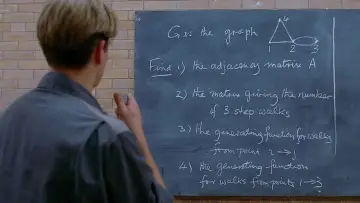 G is the graph
4
2 3
Find 1) the adjacency matrix A
2) the matrix giving the number
of 3 step walks
3) the generating function for walks
from point i → j
4) the generating function
for walks from points 1 → 3